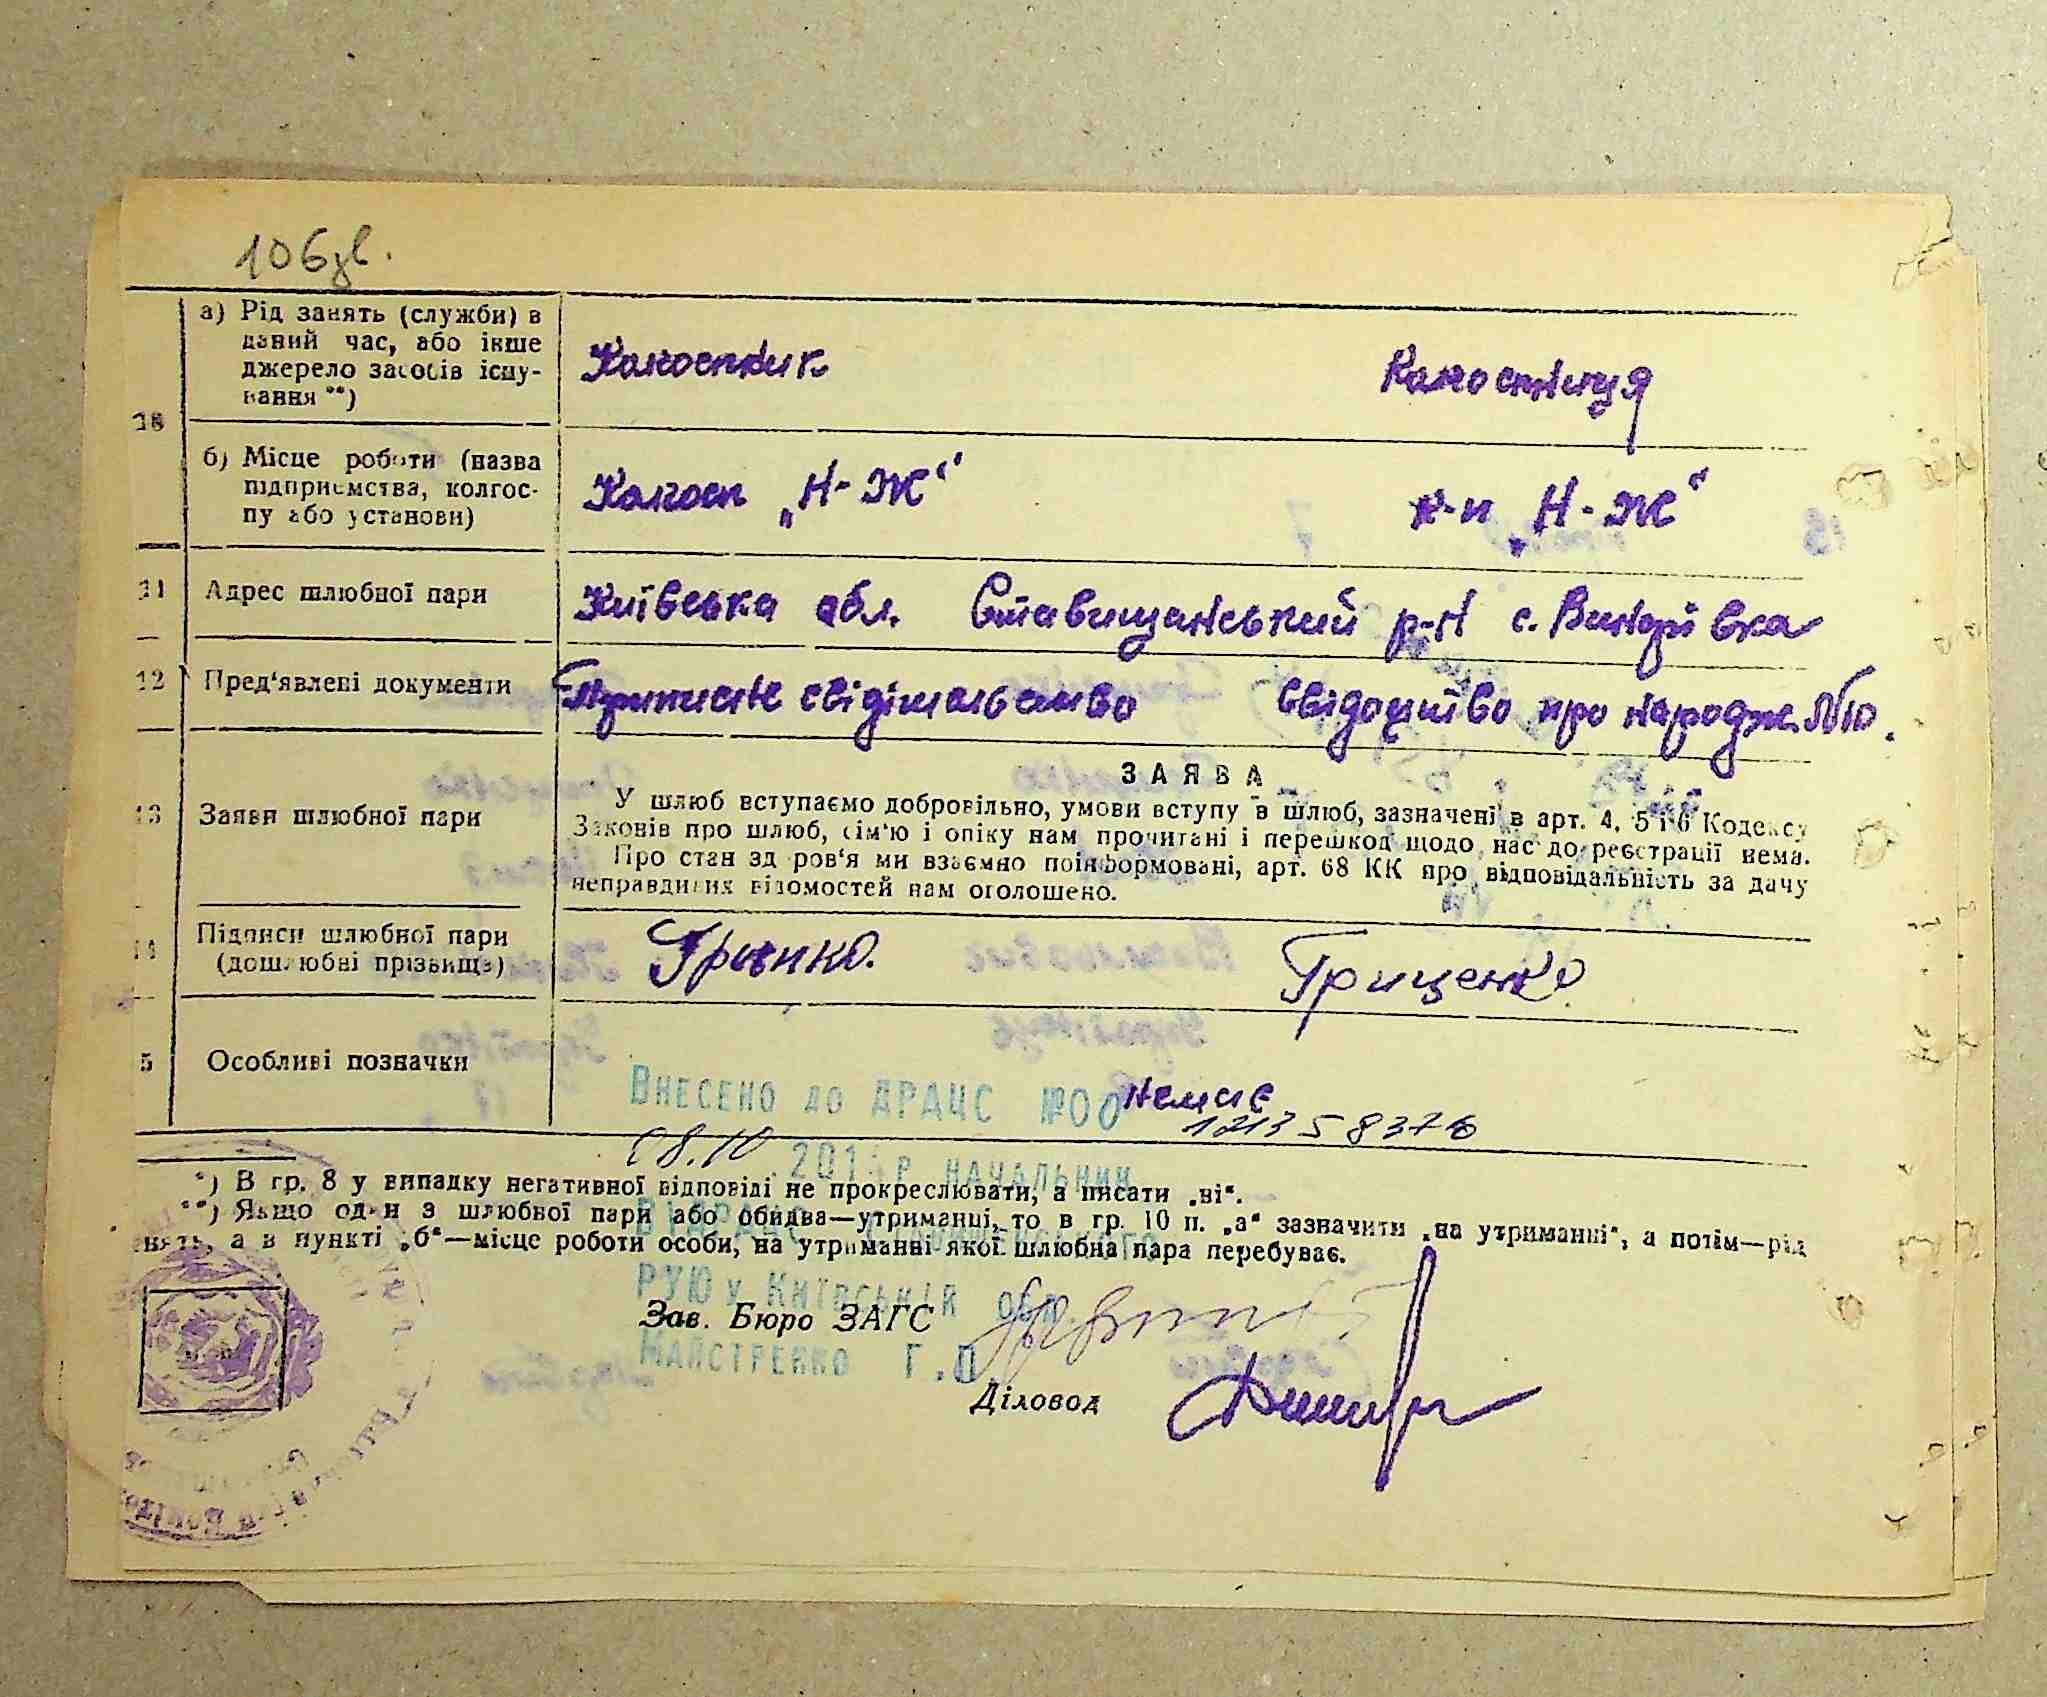 106зв.
10
а) Рід занять (служби) в
даний час, або інше
джерело засобів існу-
вання **)
Колгоспник Колгоспниця
б) Місце роботи (назва
підприємства, колгос-
пу або установи)
Колгосп „Н-Ж“ к-п „Н-Ж“
11 Адрес шлюбної пари Київська обл. Ставищанський р-н с. Винарівка
12 Пред'явлені документи Приписне свідітельство Свідоцтво про народж.
ЗАЯВА
13 Заяви шлюбної пари
У шлюб вступаємо добровільно, умови вступу в шлюб, зазначені в арт. 4, 5 і 6 Кодексу
Законів про шлюб, сім'ю і опіку нам прочитані і перешкод щодо нас до реєстрації нема.
Про стан здоров'я ми взаємно поінформовані, арт. 68 КК про відповідальність за дачу
неправдивих відомостей нам оголошено.
14 Підписи шлюбної пари
(дошлюбні прізвища)
Гриценко.
5 Особливі позначки
немає
Внесено до ДРАЦС №00 121358376
08.10 201 р. начальник
*) В гр. 8 у випадку негативної відповіді не прокреслювати, а писати „ні“.
**) Якщо один з шлюбної пари або обидва—утриманці, то в гр. 10 п. „а“ зазначити „на утриманні“, а потім—рід
занять, а в пункті „б“—місце роботи особи, на утриманні якої шлюбна пара перебуває.
РУЮ у Київській обл.
Зав. Бюро ЗАГС
Майстренко Г.П.
Діловод